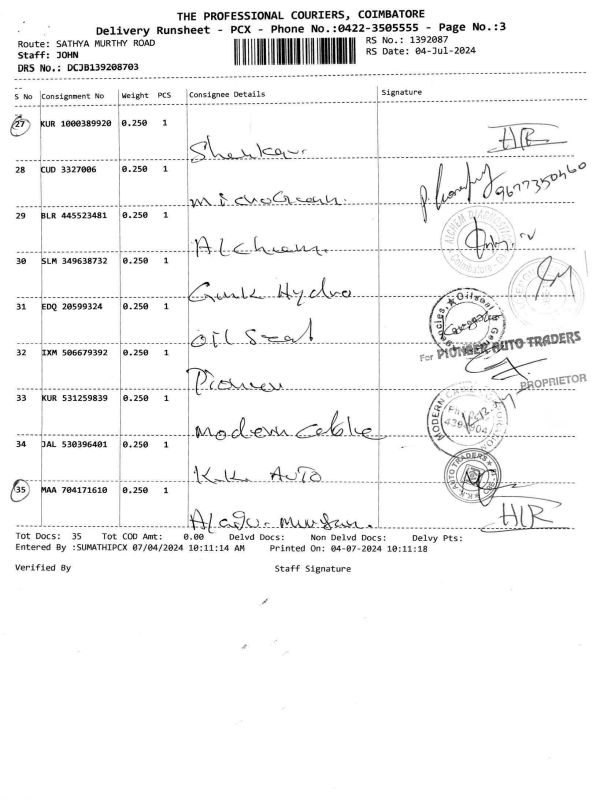 THE PROFESSIONAL COURIERS, COIMBATORE
Delivery Runsheet - PCX - Phone No.:0422-3505555 - Page No.:3
Route: SATHYA MURTHY ROAD
RS No.: 1392087
Staff: JOHN
RS Date: 04-Jul-2024
DRS No.: DCJB139208703
S No Consignment No Weight PCS Consignee Details Signature
27 KUR 1000389920 0.250 1
Shankar. HLR
28 CUD 3327006 0.250 1
MicroGreen. 9677350460
29 BLR 445523481 0.250 1
Alchem.
30 SLM 349638732 0.250 1
Hydro
31 EDQ 20599324 0.250 1
Oil Seal
32 IXM 506679392 0.250 1
For PIONEER AUTO TRADERS
Pioneer
PROPRIETOR
33 KUR 531259839 0.250 1
Modern Cable
34 JAL 530396401 0.250 1
K.K. AUTO
K.K. AUTO TRADERS
35 MAA 704171610 0.250 1
HLR
Tot Docs: 35 Tot COD Amt: 0.00 Delvd Docs: Non Delvd Docs: Delvy Pts:
Entered By :SUMATHIPCX 07/04/2024 10:11:14 AM Printed On: 04-07-2024 10:11:18
Verified By Staff Signature